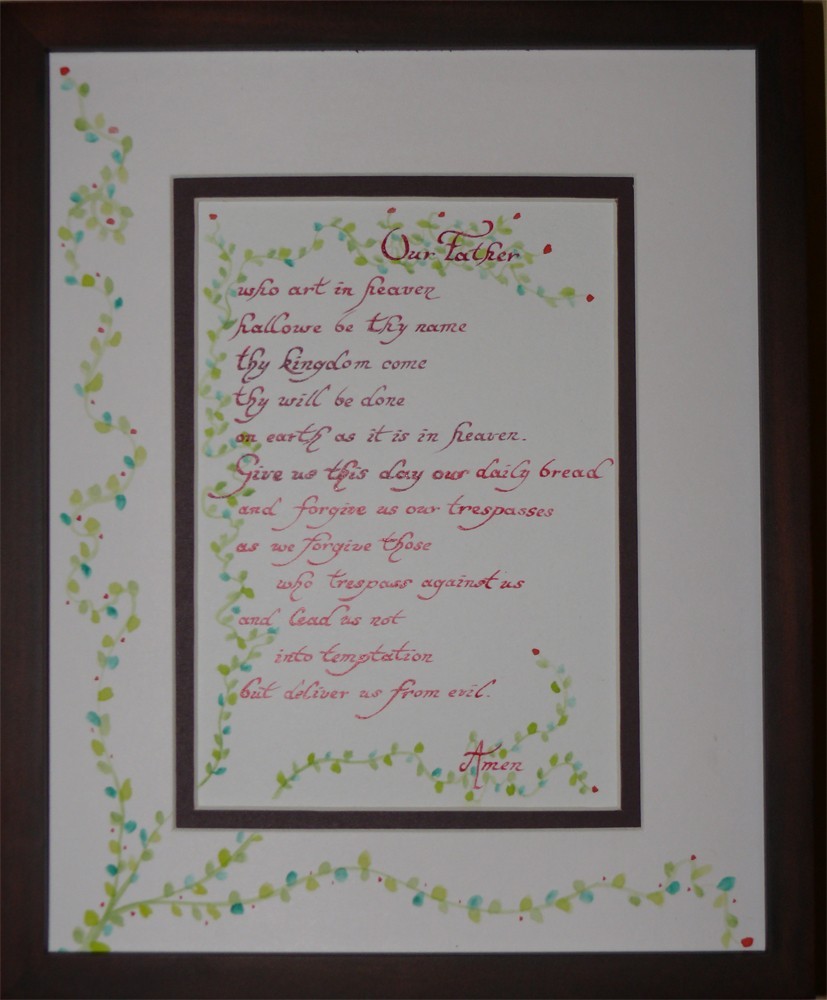 Our Father
who art in heaven
hallowe be thy name
thy kingdom come
thy will be done
on earth as it is in heaven.
Give us this day our daily bread
and forgive us our trespasses
as we forgive those
who trespass against us
and lead us not
into temptation
but deliver us from evil.
Amen